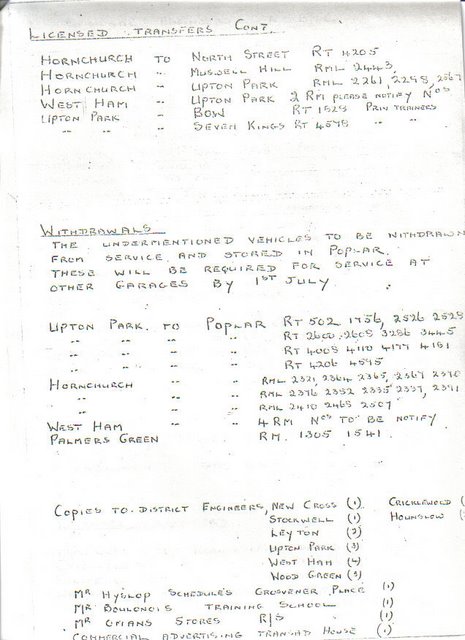 LICENSED TRANSFERS CONT
HORNCHURCH TO NORTH STREET RT 4205
HORNCHURCH " MUSWELL HILL RML 2443,
HORNCHURCH " UPTON PARK RML 2261, 2298, 2567
WEST HAM " UPTON PARK 2 RM PLEASE NOTIFY Nos
UPTON PARK " BOW RT 1528 PRIV TRAINERS
" " " SEVEN KINGS RT 4598 " "
WITHDRAWALS
THE UNDERMENTIONED VEHICLES TO BE WITHDRAWN
FROM SERVICE AND STORED IN POPLAR.
THESE WILL BE REQUIRED FOR SERVICE AT
OTHER GARAGES BY 1ST JULY.
UPTON PARK. TO POPLAR RT 502 1756, 2526 2528
" " " " RT 2600 2605 3286 3445
" " " " RT 4008 4110 4177 4181
" " " " RT 4206 4595
HORNCHURCH " " RML 2321, 2364 2365, 2367 2370
" " " RML 2376 2352 2335 2337, 2391
" " " RML 2410 2465 2507
WEST HAM " " 4 RM Nos TO BE NOTIFY
PALMERS GREEN RM. 1305 1541.
COPIES TO DISTRICT ENGINEERS, NEW CROSS (1) CRICKLEWOOD (
STOCKWELL (1) HOUNSLOW (
LEYTON (2)
UPTON PARK (3)
WEST HAM (4)
WOOD GREEN (5)
MR HYSLOP SCHEDULES GROSVENER PLACE (1)
MR BOULONOIS TRAINING SCHOOL (1)
MR STORES R/S (1)
COMMERCIAL ADVERTISING TRANSAD HOUSE (1)